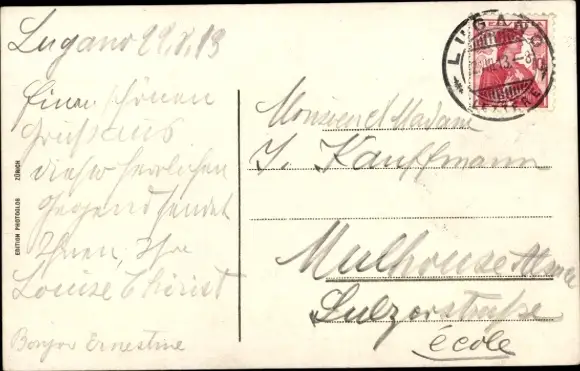 Lugano 22.8.13
Einen schönen
Gruss aus
dieser herrlichen
Gegend sendet
Ihnen, Ihre
Louise Christ
Bonjor Ernestine
EDITION PHOTOGLOB ZÜRICH
LUGANO
LETTERE
Monsieur et Madame
J. Kauffmann
Mulhouse Alsace
Sulzerstraße
école